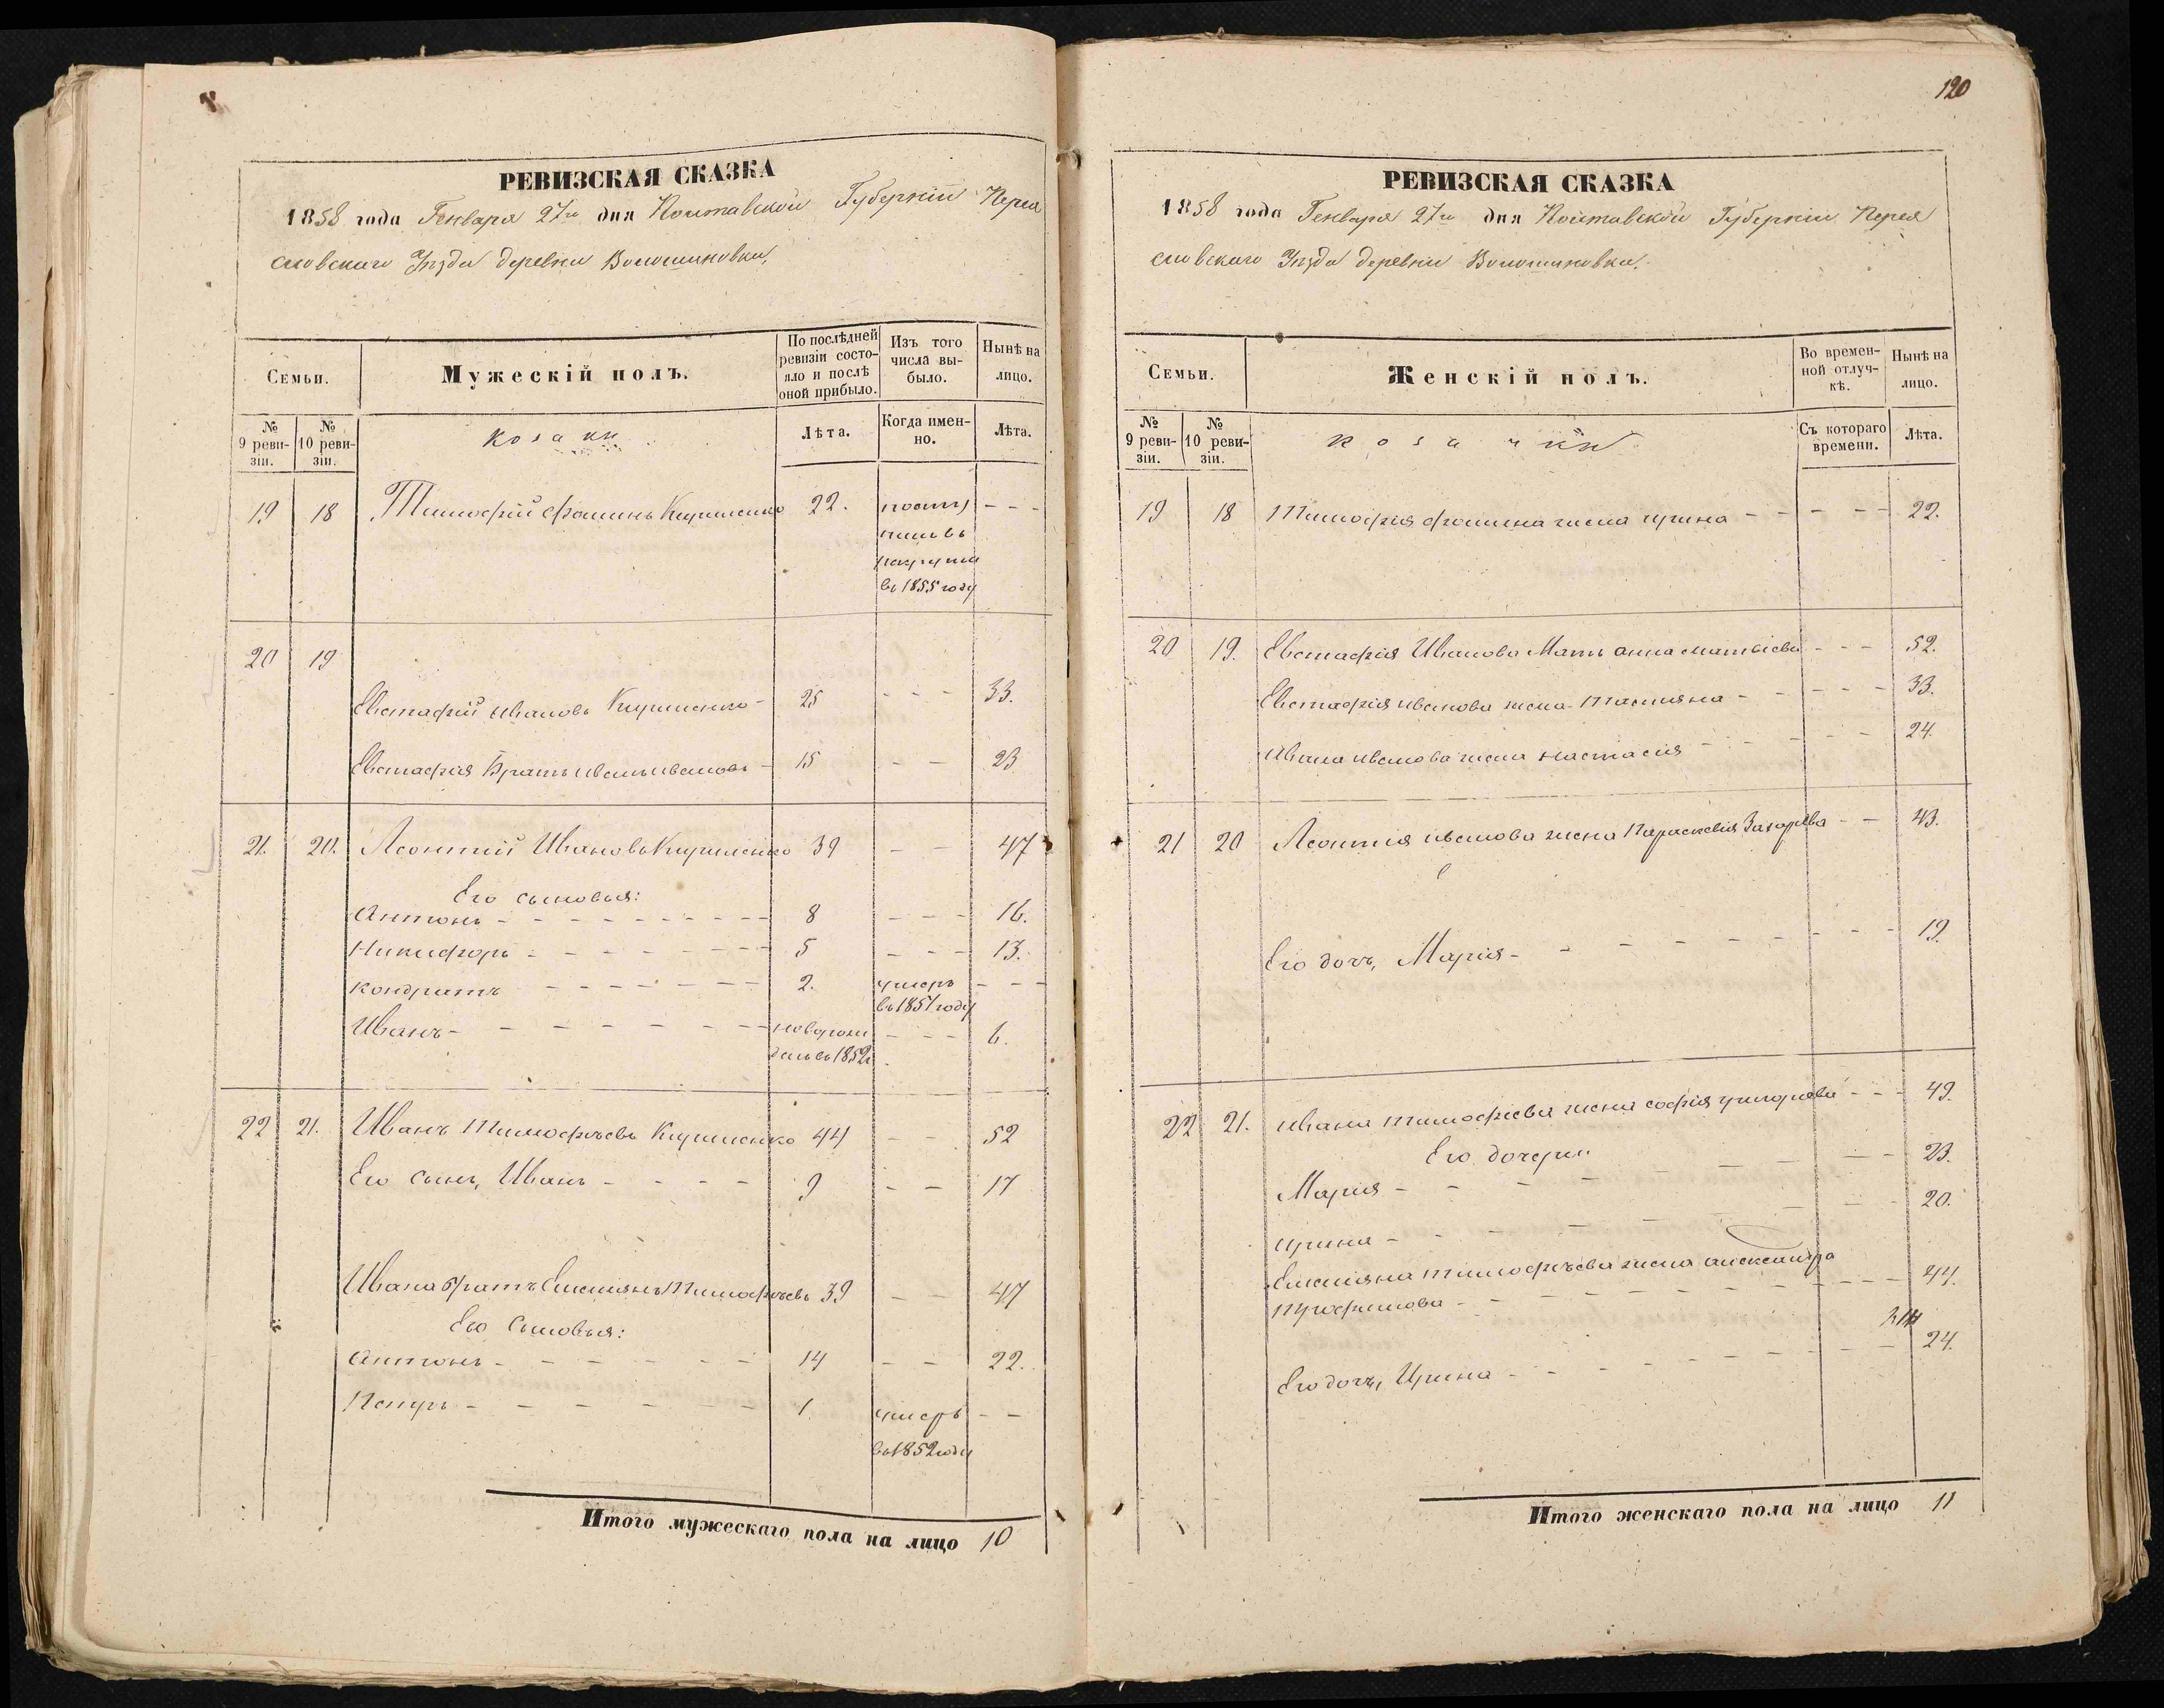 РЕВИЗСКАЯ СКАЗКА
1858 года Генваря 27го дня Полтавской Губерніи Перея
словскаго Уѣзда деревни Волошиновки.
Семьи.
Мужескій полъ.
По послѣдней ревизіи состояло и послѣ оной прибыло.
Изъ того числа выбыло.
Нынѣ на лицо.
№ 9 ревизіи.
№ 10 ревизіи.
козаки
Лѣта.
Когда именно.
Лѣта.
19 18 Тимофій Фоминъ Кириленко 22. посту - - -
пилъ въ
рекруты
въ 1855 году
20 19
Евстафій Ивановъ Кириленко - 25 - - - 33.
Евстафія Братъ Иванъ Ивановъ - 15 - - 23
21. 20. Леонтій Ивановъ Кириленко 39 - - 47
Его сыновья:
Антонъ - - - - - - - - - 8 - - - 16.
Никифоръ - - - - - - - - 5 - - - 13.
Кондратъ - - - - - - - 2. умеръ - - -
въ 1851 году
Иванъ - - - - - - - - новорож - - - 6.
денъ въ 1852г.
22 21. Иванъ Тимофѣевъ Кириленко 44 - - 52
Его сынъ, Иванъ - - - - 9 - - 17
Ивана братъ Емельянъ Тимофѣевъ 39 - - 47
Его Сыновья:
Антонъ - - - - - - 14 - - 22.
Петръ - - - - - - 1. умеръ - -
въ 1852 году
Итого мужескаго пола на лицо 10
120
РЕВИЗСКАЯ СКАЗКА
1858 года Генваря 27го дня Полтавской Губерніи Перея
словскаго Уѣзда деревни Волошиновки.
Семьи.
Женскій полъ.
Во временной отлучкѣ.
Нынѣ на лицо.
№ 9 ревизіи.
№ 10 ревизіи.
козачки
Съ котораго времени.
Лѣта.
19 18 Тимофія Фомина жена Ирина - - - - - 22.
20 19. Евстафія Иванова Мать Анна Матвіева - - - 52.
Евстафія Иванова жена Татияна - - - - - 33.
Ивана Иванова жена Настасія - - - - - 24.
21 20 Леонтія Иванова жена Параскевія Захарьева - - 43.
Его дочь, Марія - - - - - - - - - - 19.
22 21. Ивана Тимофіева жена Софія Григорьева - - - 49.
Его дочери
Марія - - - - - - - - - - 23.
Ирина - - - - - - - - - - 20.
Емельяна Тимофѣева жена Александра
Трофимова - - - - - - - - - - 44.
Его дочь, Ирина - - - - - - - - - - 24.
Итого женскаго пола на лицо 11